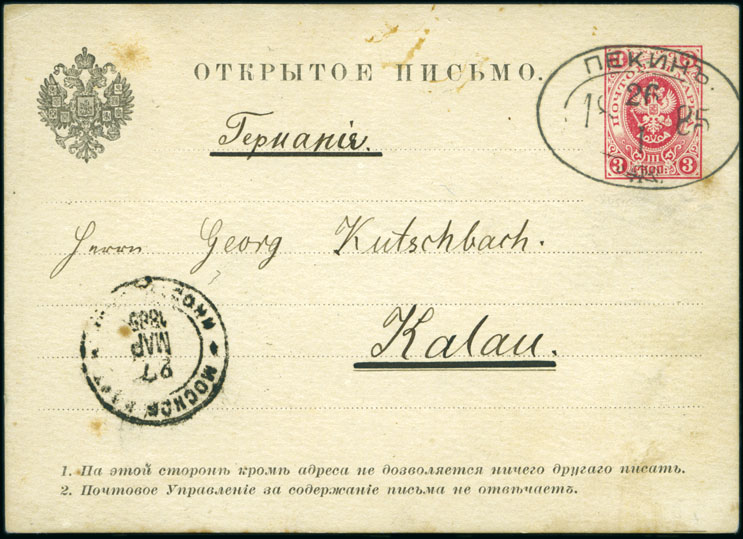 ОТКРЫТОЕ ПИСЬМО.
ПЕКИНЪ.
26
1885
1
3 КОП. 3
Германія.
Herrn Georg Kutschbach.
Kalau.
1885
МАР
27
МОСКВА
1. На этой сторонѣ кромѣ адреса не дозволяется ничего другаго писать.
2. Почтовое Управленіе за содержаніе письма не отвѣчаетъ.